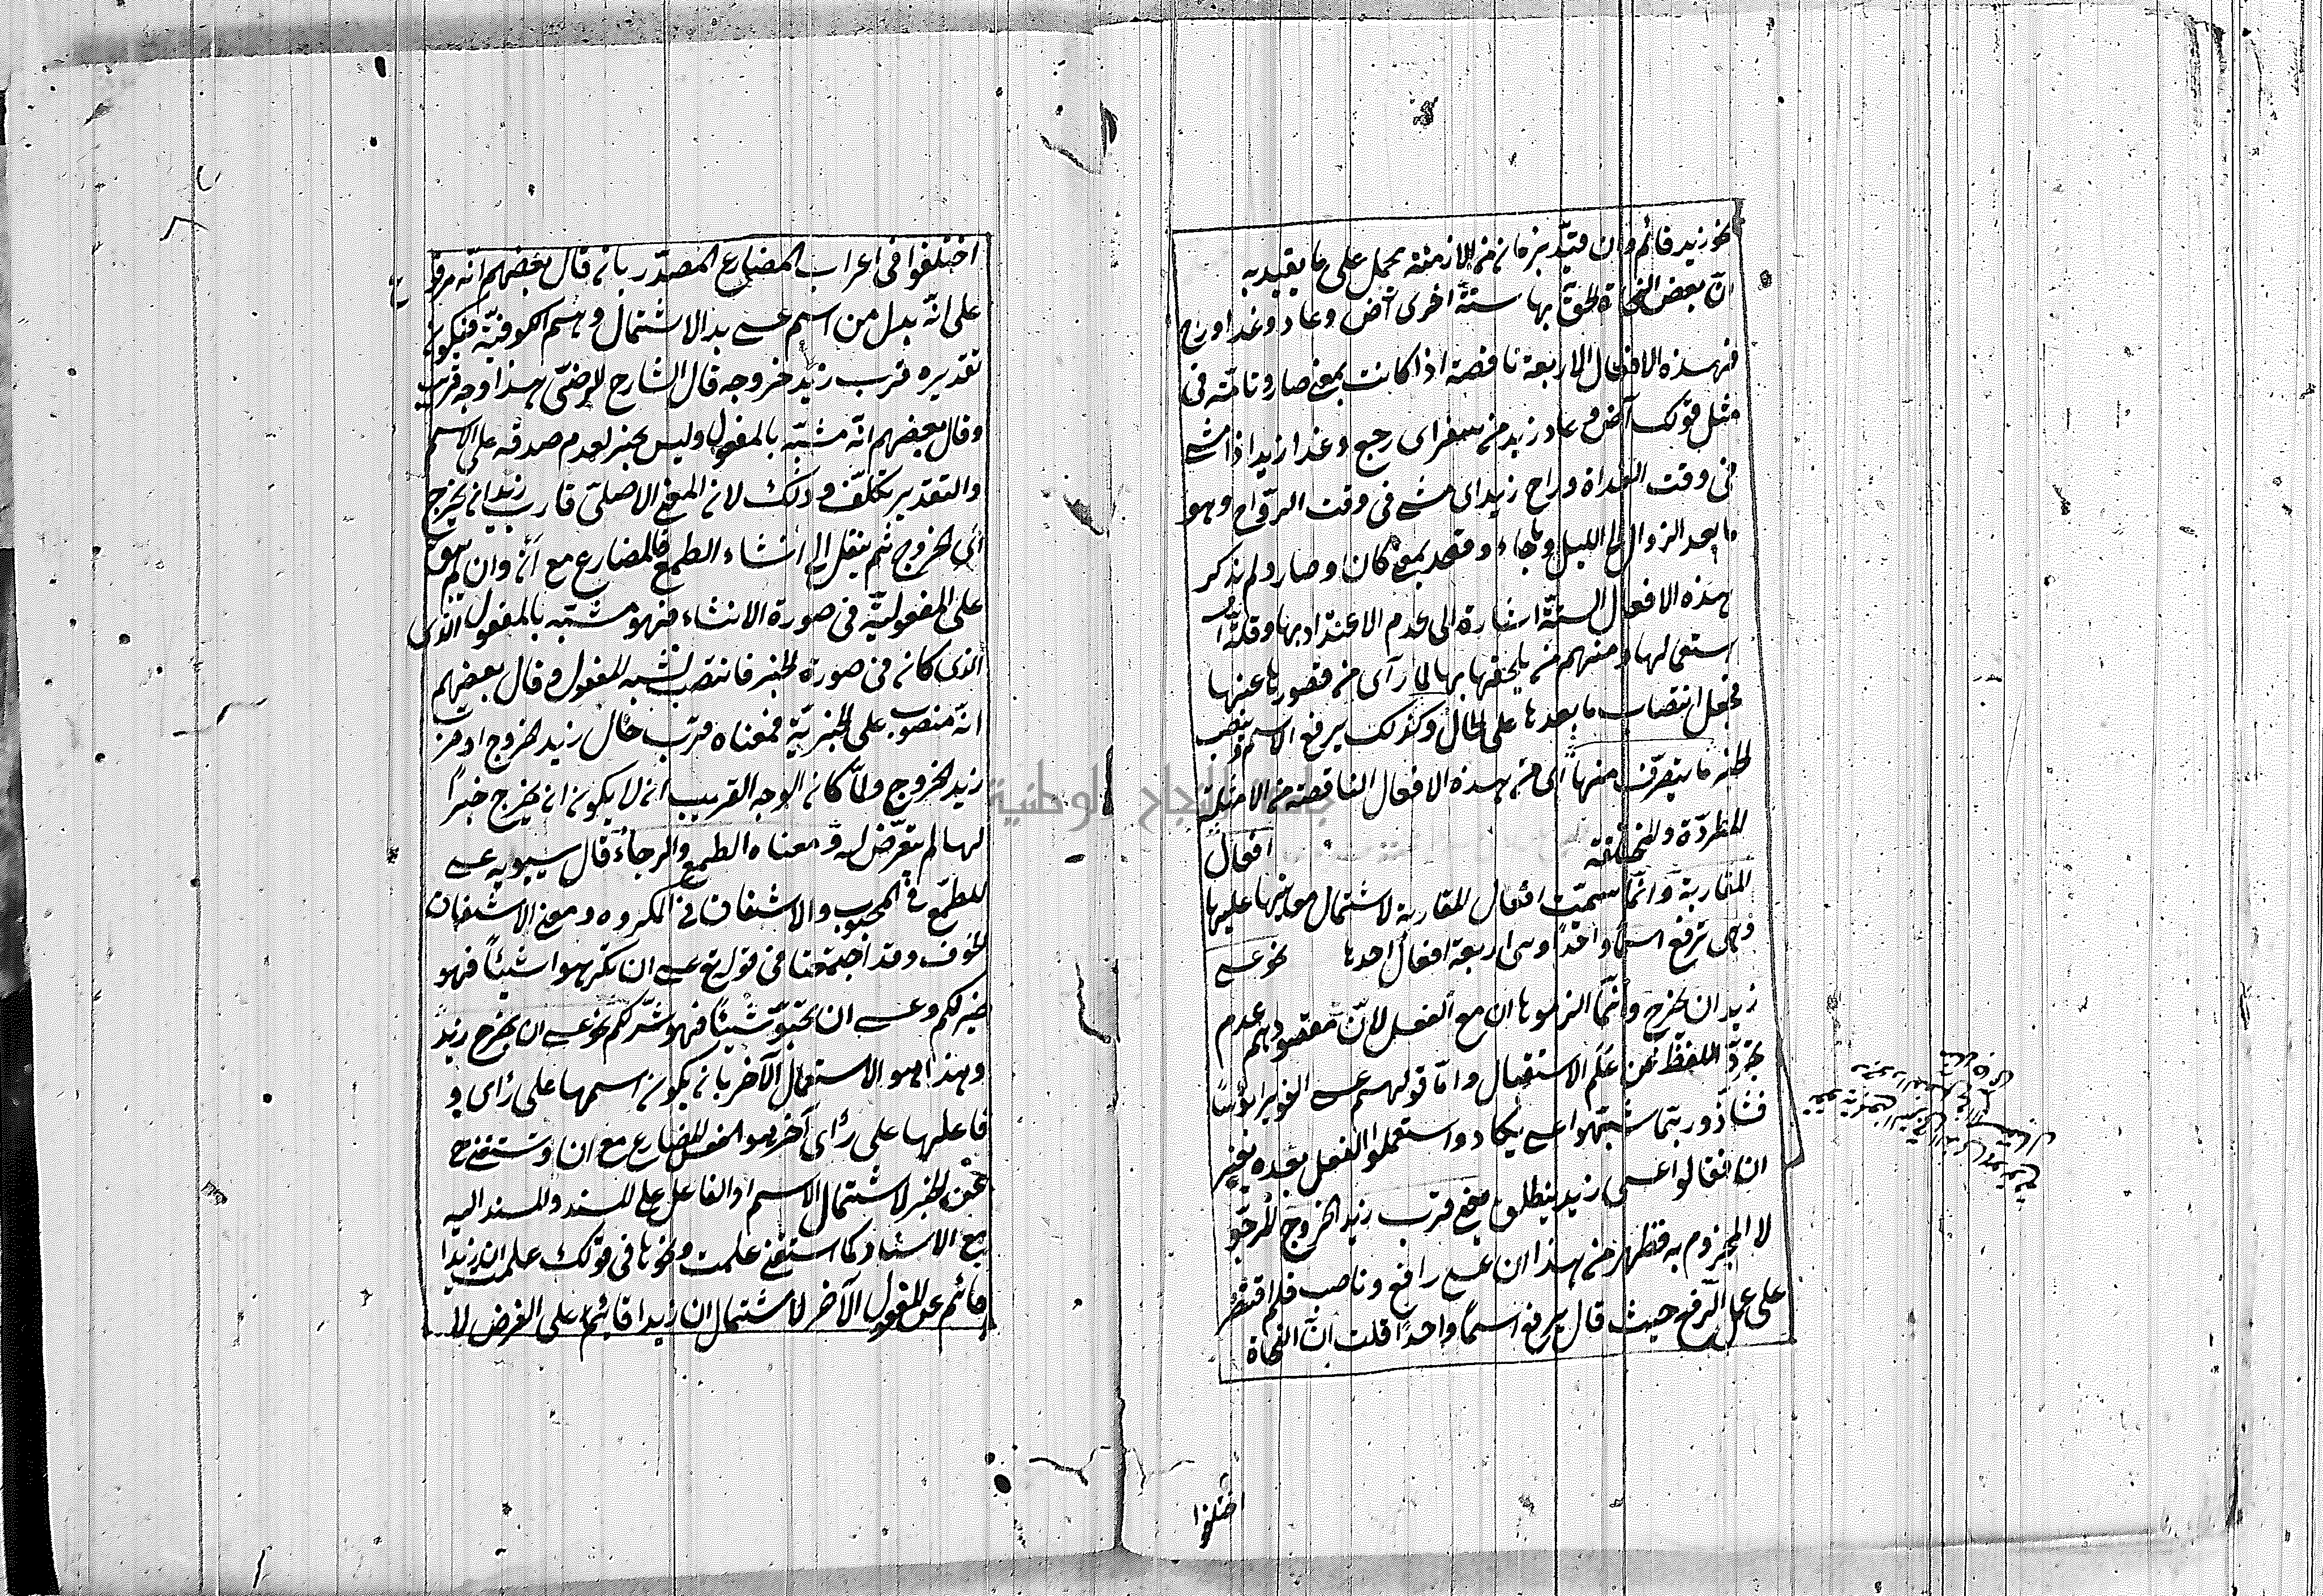 نحو زيد قائم وان قيّد بزمان من الازمنة يحمل على ما يقيد به
انّ بعض النحاة الحق بها ستّة اخرى آض وعاد وغدا وراح
فهذه الافعال الاربعة ناقصة اذا كانت بمعنى صار وتامّة فى
مثل قولك آض و عاد زيد من سفر اى رجع وغدا زيد اذا مشى
فى وقت الغداة وراح زيد اى مشى فى وقت الروّاح وهو
ما بعد الزوال الى الليل وجاء وقعد بمعنى كان وصار ولم يذكر
هذه الافعال الستّة اشارة الى عدم الاعتداد بها وقلّة
استعمالها ومنهم من يلحقها بها لما رآى من قصورها عنها
فجعل انتصاب ما بعدها على الحال وكذلك يرفع الاسم وينصب
الخبر ما يتصرّف منها اى من هذه الافعال الناقصة من الامثلة
المطردّة والمختلفة افعال
المقاربة وانّما سمّيت افعال المقاربة لاشتمال معانيها عليها
وهى ترفع اسمًا واحدًا وهى اربعة افعال احدها نحو عسى
زيد ان يخرج وانّما الزموها ان مع الفعل لانّ مقصودهم عدم
تجرّد اللفظ عن علم الاستقبال وامّا قولهم عسى الغوير ابؤسًا
فشاذّ وربّما شبّهوا عسى بكاد واستعملوا الفعل بعده بغير
ان فقالوا عسى زيد ينطلق فمعنى قرب زيد الخروج المرجوّ
لا المجزوم به فظهر من هذا ان عسى رافع وناصب فلم اقتصر
على عمل الرّفع حيث قال يرفع اسمًا واحدًا قلت انّ النحاة
اختلفوا
اختلفوا فى اعراب المضارع المصدّر بان قال بعضهم انّه مرفوع
على انّه بدل من اسم عسى بدل الاشتمال وهم الكوفيّة فيكون
تقديره قرب زيد خروجه قال الشارح الرضىّ هذا وجه قريب
وقال بعضهم انّه مشبّه بالمفعول وليس بخبر لعدم صدقه على الاسم
والتقدير تكلّف وذلك لان المعنى الاصلىّ قارب زيد ان يخرج
اى الخروج ثم ينقل الى انشاء الطمع فالمضارع مع ان وان لم يبق
على المفعوليّة فى صورة الانشاء فهو مشبّه بالمفعول الذى
الذى كان فى صورة الخبر فانتصب لشبه المفعول وقال بعضهم
انّه منصوب على الخبريّة فمعناه قرب حال زيد الخروج او قرب
زيد الخروج ولمّا كان الوجه القريب ان لا يكون ان يخرج خبرًا
لها لم يتعرّض له ومعناه الطمع والرجاء قال سيبويه عسى
للطمّع فى المحبوب والاشفاق فى المكروه ومعنى الاشفاق
الخوف وقد اجتمعتا فى قوله تع عسى ان تكرهوا شيئًا فهو
خير لكم وعسى ان تحبّوا شيئًا فهو شرّ لكم نحو عسى ان يخرج زيد
وهذا هو الاستعمال الآخر بان يكون اسمها على رأى و
فاعلها على رأى آخر هو الفعل المضارع مع ان وتستغنى ح
عن الخبر لاشتمال الاسم او الفاعل على المسند والمسند اليه
مع الاسناد كما استغنى علمت ونحوها فى قولك علمت ان زيدا
قائم عن المفعول الآخر لاشتمال ان زيدا قائم على الغرض لا
جامعة النجاح الوطنية